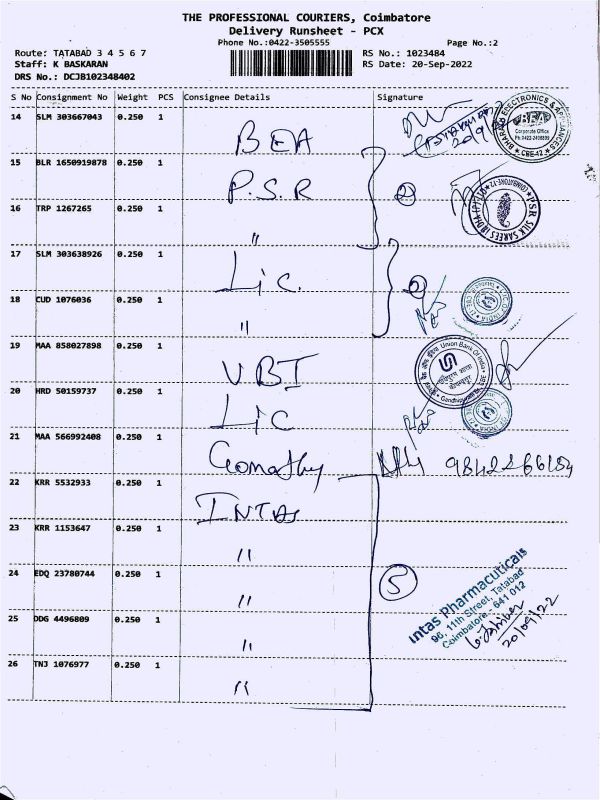 THE PROFESSIONAL COURIERS, Coimbatore
Delivery Runsheet - PCX
Phone No.:0422-3505555
Page No.:2
Route: TATABAD 3 4 5 6 7
RS No.: 1023484
Staff: K BASKARAN
RS Date: 20-Sep-2022
DRS No.: DCJB102348402
S No Consignment No Weight PCS Consignee Details Signature
14 SLM 303667043 0.250 1 BEA
BHARAT ELECTRONICS & APPLIANCES
BEA
Corporate Office
CBE-12
15 BLR 1650919878 0.250 1 P.S.R
2
P.S.R SILK SAREES INDIA (P) LTD
COIMBATORE-12
16 TRP 1267265 0.250 1 "
17 SLM 303638926 0.250 1 Lic.
2
18 CUD 1076036 0.250 1 "
19 MAA 858027898 0.250 1 UBI
Union Bank Of India
20 HRD 50159737 0.250 1 Lic
21 MAA 566992408 0.250 1 Gomathy
22 KRR 5532933 0.250 1 INTAS
23 KRR 1153647 0.250 1 "
24 EDQ 23780744 0.250 1 "
5
Intas Pharmacuticals
96, 11th Street, Tatabad
Coimbatore - 641 012
20/09/22
25 DDG 4496809 0.250 1 "
26 TNJ 1076977 0.250 1 "